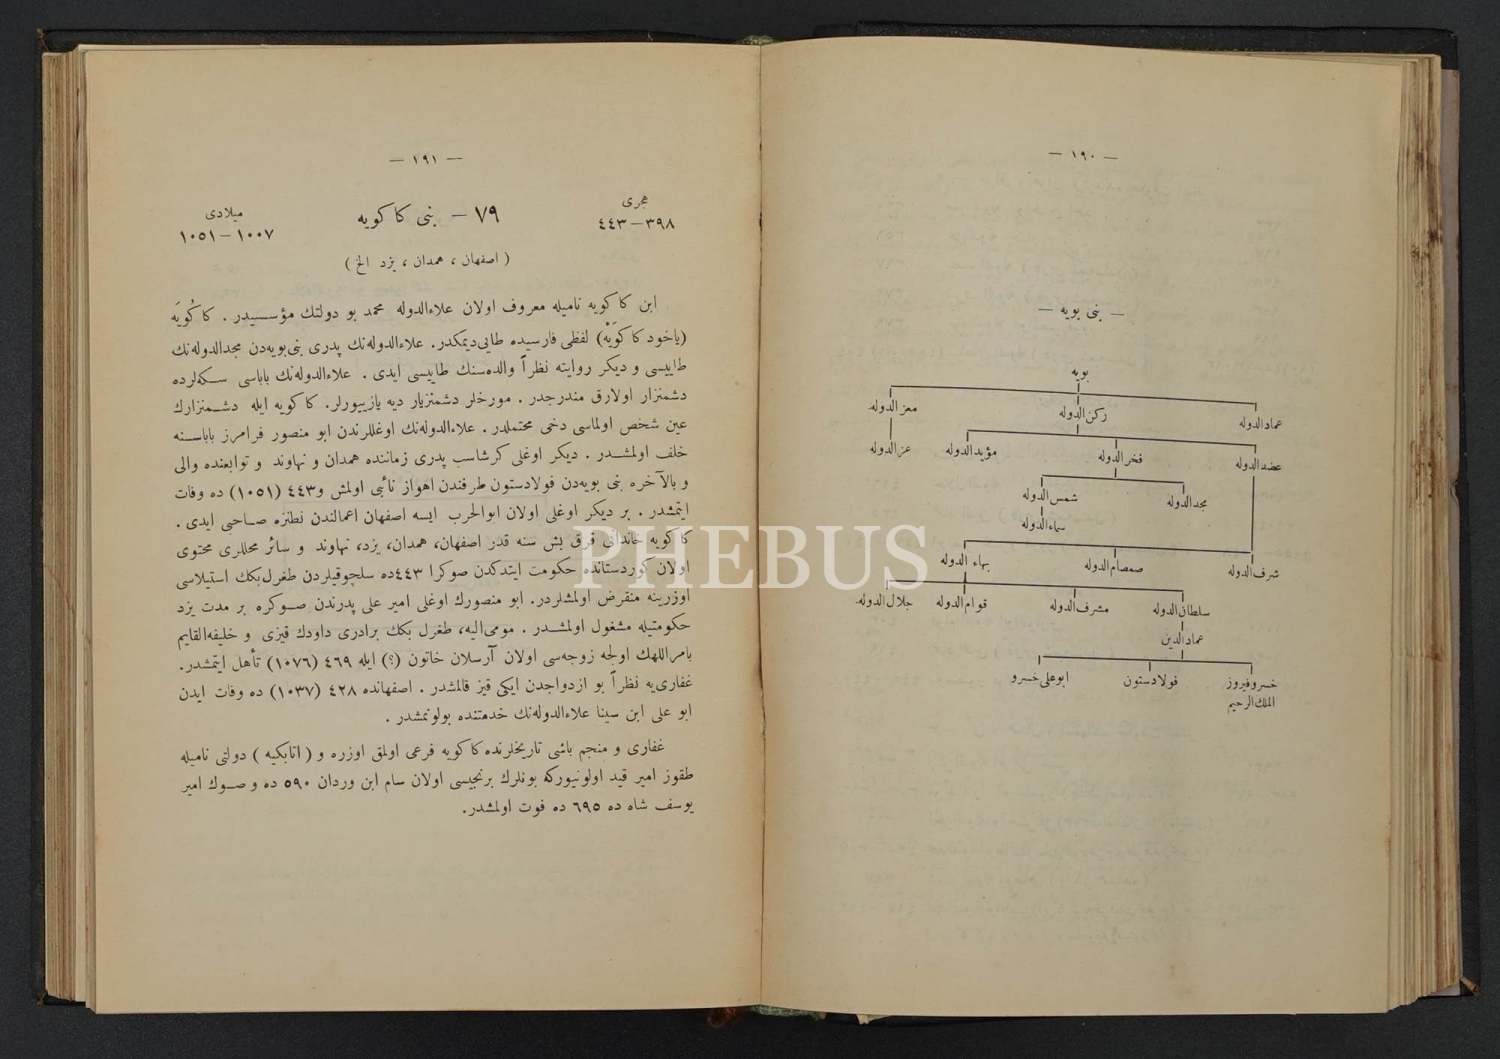 — ١٩٠ —
— بنى بويه —
بويه
عماد الدوله ركن الدوله معز الدوله
عضد الدوله فخر الدوله مؤيد الدوله عز الدوله
مجد الدوله شمس الدوله
سماء الدوله
شرف الدوله صمصام الدوله بهاء الدوله
سلطان الدوله مشرف الدوله قوام الدوله جلال الدوله
عماد الدين
خسرو فيروز فولادستون ابو على خسرو
الملك الرحيم
— ١٩١ —
هجرى ٧٩ — بنى كاكويه ميلادى
٣٩٨—٤٤٣ ١٠٠٧—١٠٥١
( اصفهان ، همدان ، يزد الخ )
ابن كاكويه ناميله معروف اولان علاءالدوله محمد بو دولتك مؤسسيدر . كاكُويَه
(ياخود كاكوَيْه) لفظى فارسيده طايى ديمكدر. علاءالدوله نك پدرى بنى بويه دن مجدالدوله نك
طاييسى و ديكر روايته نظراً والده سنك طاييسى ايدى . علاءالدوله نك باباسى سكه لرده
دشمنزار اولارق مندرجدر . مورخلر دشمنزيار ديه يازييورلر. كاكويه ايله دشمنزارك
عين شخص اولماسى دخى محتملدر . علاءالدوله نك اوغللرندن ابو منصور فرامرز باباسنه
خلف اولمشدر . ديكر اوغلى كرشاسب پدرى زماننده همدان و نهاوند و توابعنده والى
و بالآخره بنى بويه دن فولادستون طرفندن اهواز نائبى اولمش و٤٤٣ (١٠٥١) ده وفات
ايتمشدر . بر ديكر اوغلى اولان ابوالحرب ايسه اصفهان اعمالندن نطنزه صاحبى ايدى .
كاكويه خاندانى قرق بش سنه قدر اصفهان، همدان، يزد، نهاوند و سائر محللرى محتوى
اولان كوردستانده حكومت ايتدكدن صوكرا ٤٤٣ده سلجوقيلردن طغرل بكك استيلاسى
اوزرينه منقرض اولمشلردر. ابو منصورك اوغلى امير على پدرندن صوكره بر مدت يزد
حكومتيله مشغول اولمشدر . مومى اليه، طغرل بكك برادرى داودك قيزى و خليفه القايم
بامراللهك اولجه زوجه سى اولان آرسلان خاتون (؟) ايله ٤٦٩ (١٠٧٦) تأهل ايتمشدر.
غفارى يه نظراً بو ازدواجدن ايكى قيز قالمشدر . اصفهانده ٤٢٨ (١٠٣٧) ده وفات ايدن
ابو على ابن سينا علاءالدوله نك خدمتنده بولونمشدر .
غفارى و منجم باشى تاريخلرنده كاكويه فرعى اولمق اوزره و ( اتابكيه ) دولتى ناميله
طقوز امير قيد اولونيوركه بونلرك برنجيسى اولان سام ابن وردان ٥٩٠ ده و صوك امير
يوسف شاه ده ٦٩٥ ده فوت اولمشدر.
PHEBUS